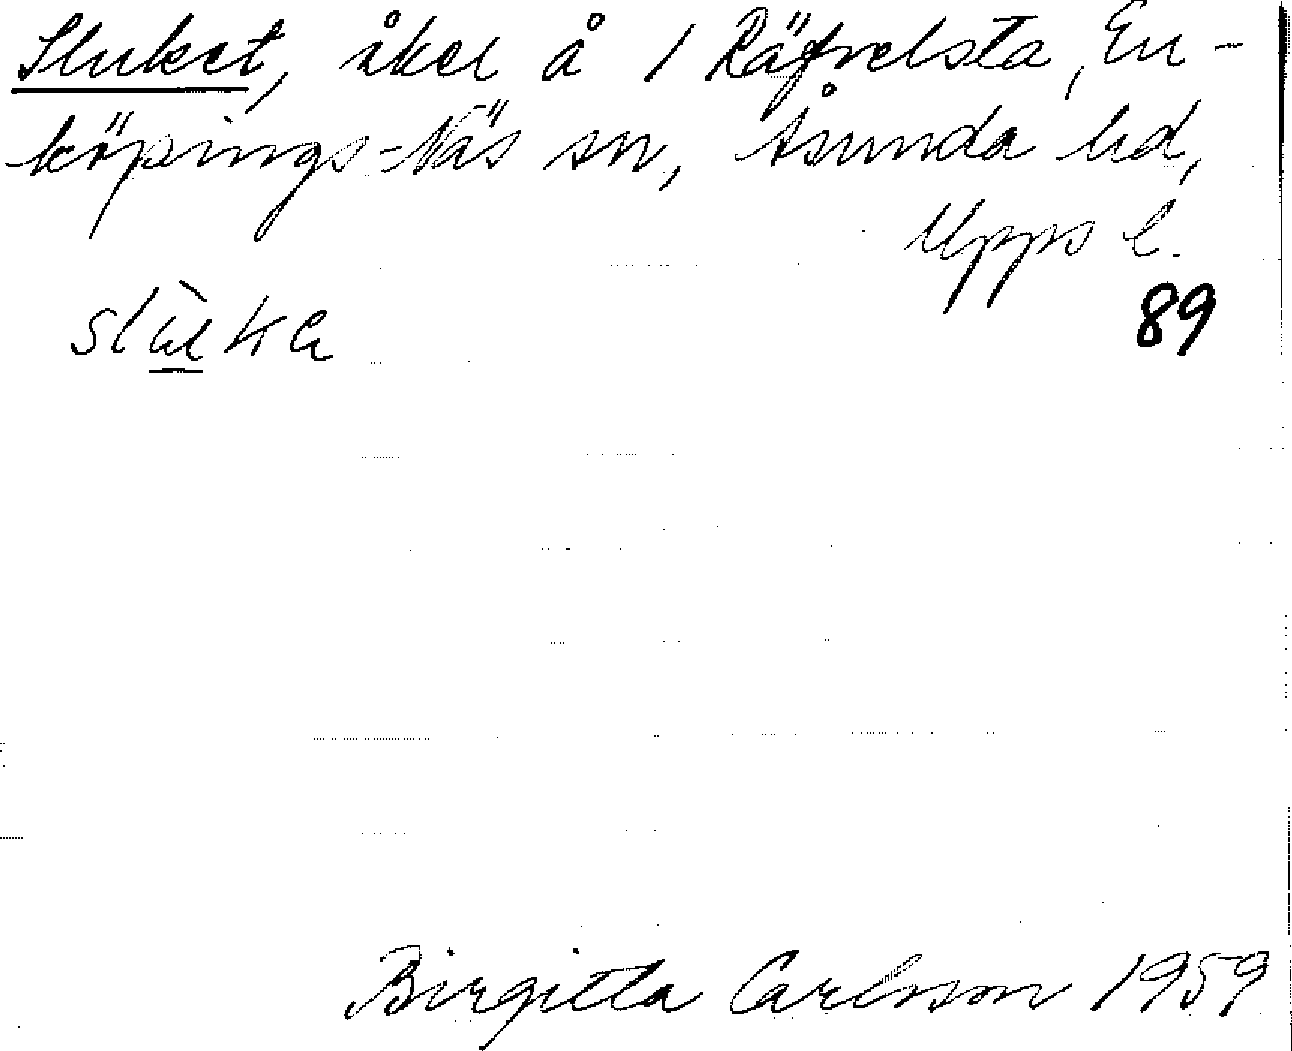 Sluket, åker å 1 Räfvelsta, En-
köpings-Näs sn, Åsunda hd,
Upps l.
89
Birgitta Carlsson 1959